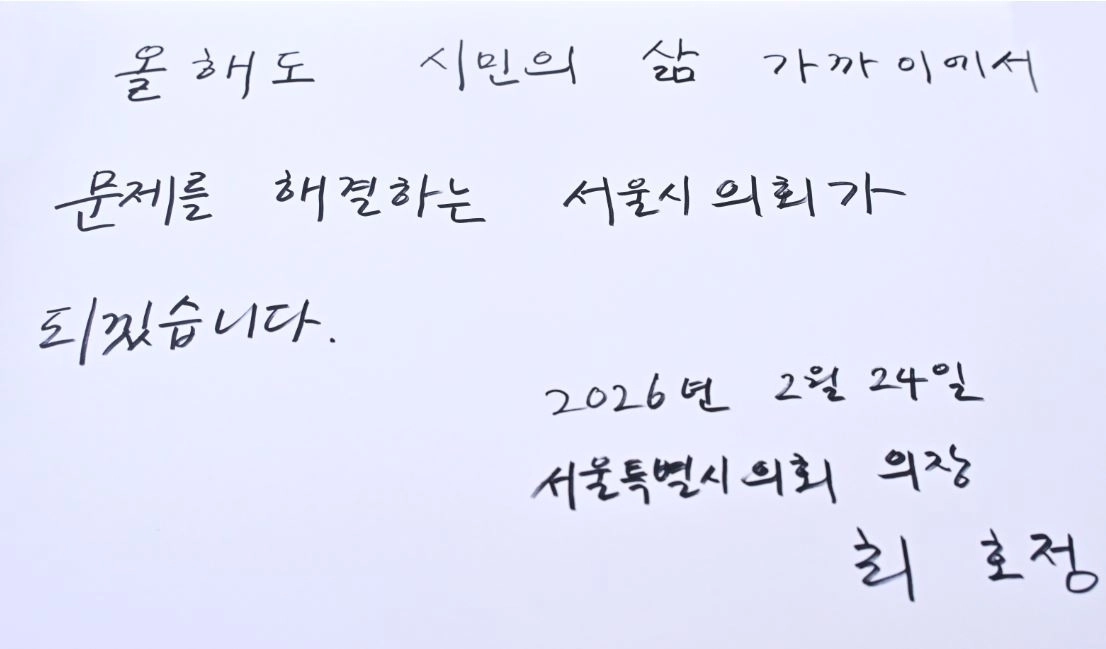 올해도 시민의 삶 가까이에서
문제를 해결하는 서울시의회가
되겠습니다.
2026년 2월 24일
서울특별시의회 의장
최호정